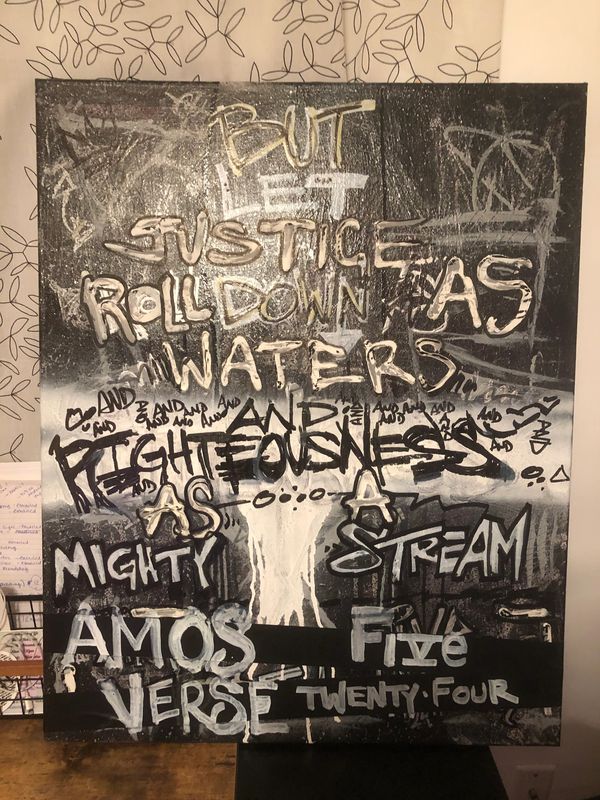 BUT
LET
JUSTICE
ROLL DOWN AS
WATERS
AND AND AND AND AND AND AND AND AND AND
AND AND AND AND AND AND AND
RIGHTEOUSNESS AND
AND AS A
MIGHTY STREAM
AMOS FIVE
VERSE TWENTY-FOUR